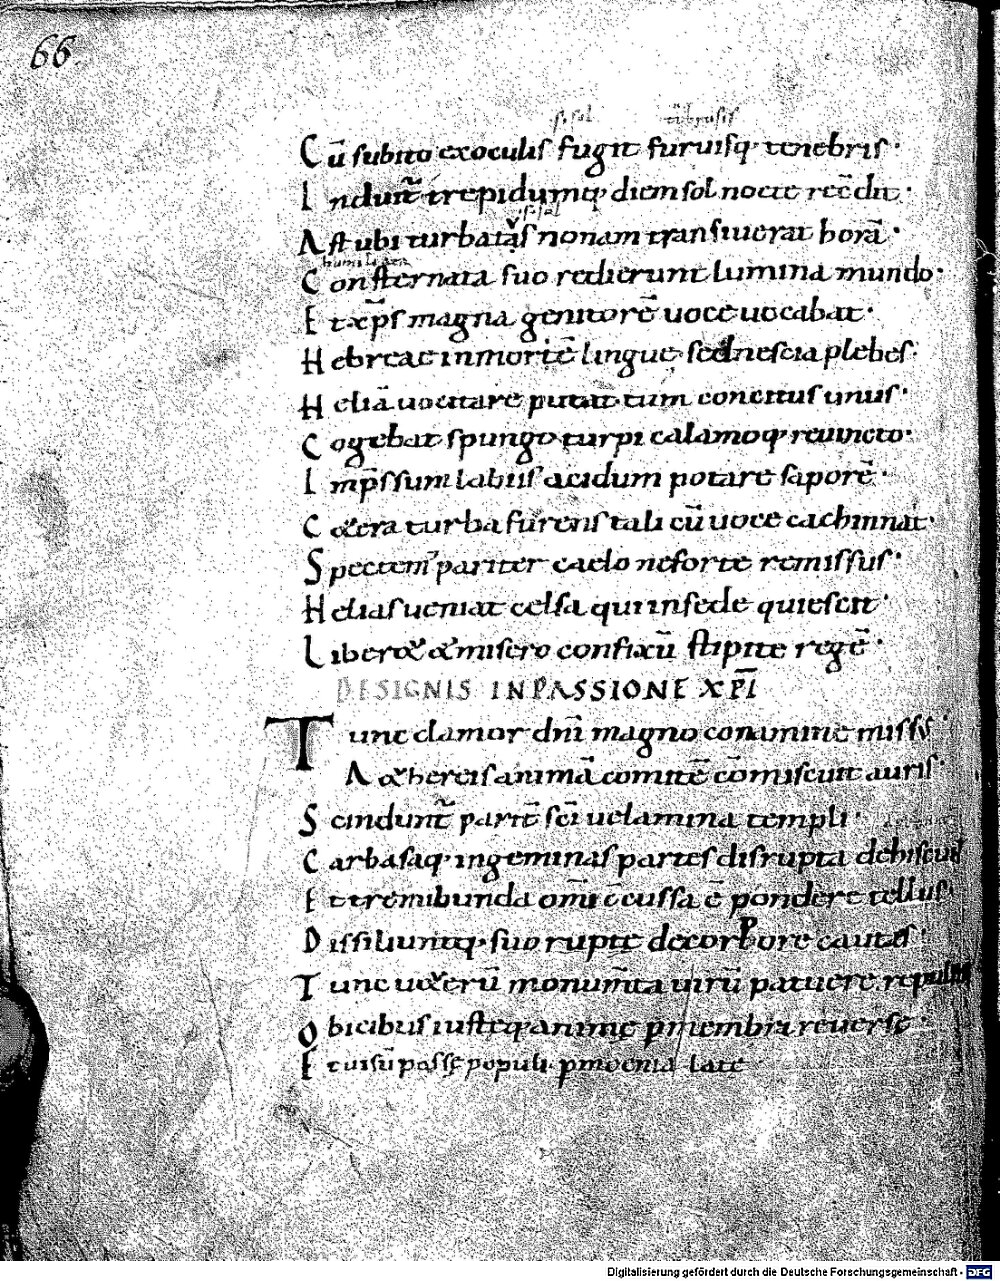 66.
.s. sol
Cū subito exoculis fugit furuisq; tenebris·
Indunt̄ trepidumq; diem sol nocte recc̄dit·
.s. sol
Ast ubi turbatus nonam transiuerat horā·
Consternata suo redierunt lumina mundo·
Et xp̄s magna genitorē uoce uocabat·
Hebreae in mortē lingue· sed nescia plebes·
Heliā uocitare putat tum concitus unus·
Cogebat spungo turpi calamoq; reuincto·
Imp̄ssum labiis acidum potare saporē·
Cetera turba furens tali cū uoce cachinnat·
Spectem' pariter caelo ne forte remissus·
Helias ueniat celsa qui in sede quiescit·
Liberet & misero confixū stipite regē·
DE SIGNIS IN PASSIONE XP̄I
Tunc clamor dn̄i magno conamine missus·
Aethereis animā comitē cōmiscuit auris·
Scindunt̄ paritē sc̄i uelamina templi·
Carbasaq; ingeminas partes disrupta dehiscunt
Et tremibunda om̄i c̄cussa ē pondere tellus·
Dissiliuntq; suo rupte de corpore cautes·
Tunc ueterū monum̄ta uirū patuere repulsis
Obicibus iusteq; animę p membra reuerse·
Et uisū passę populi· p moenia late